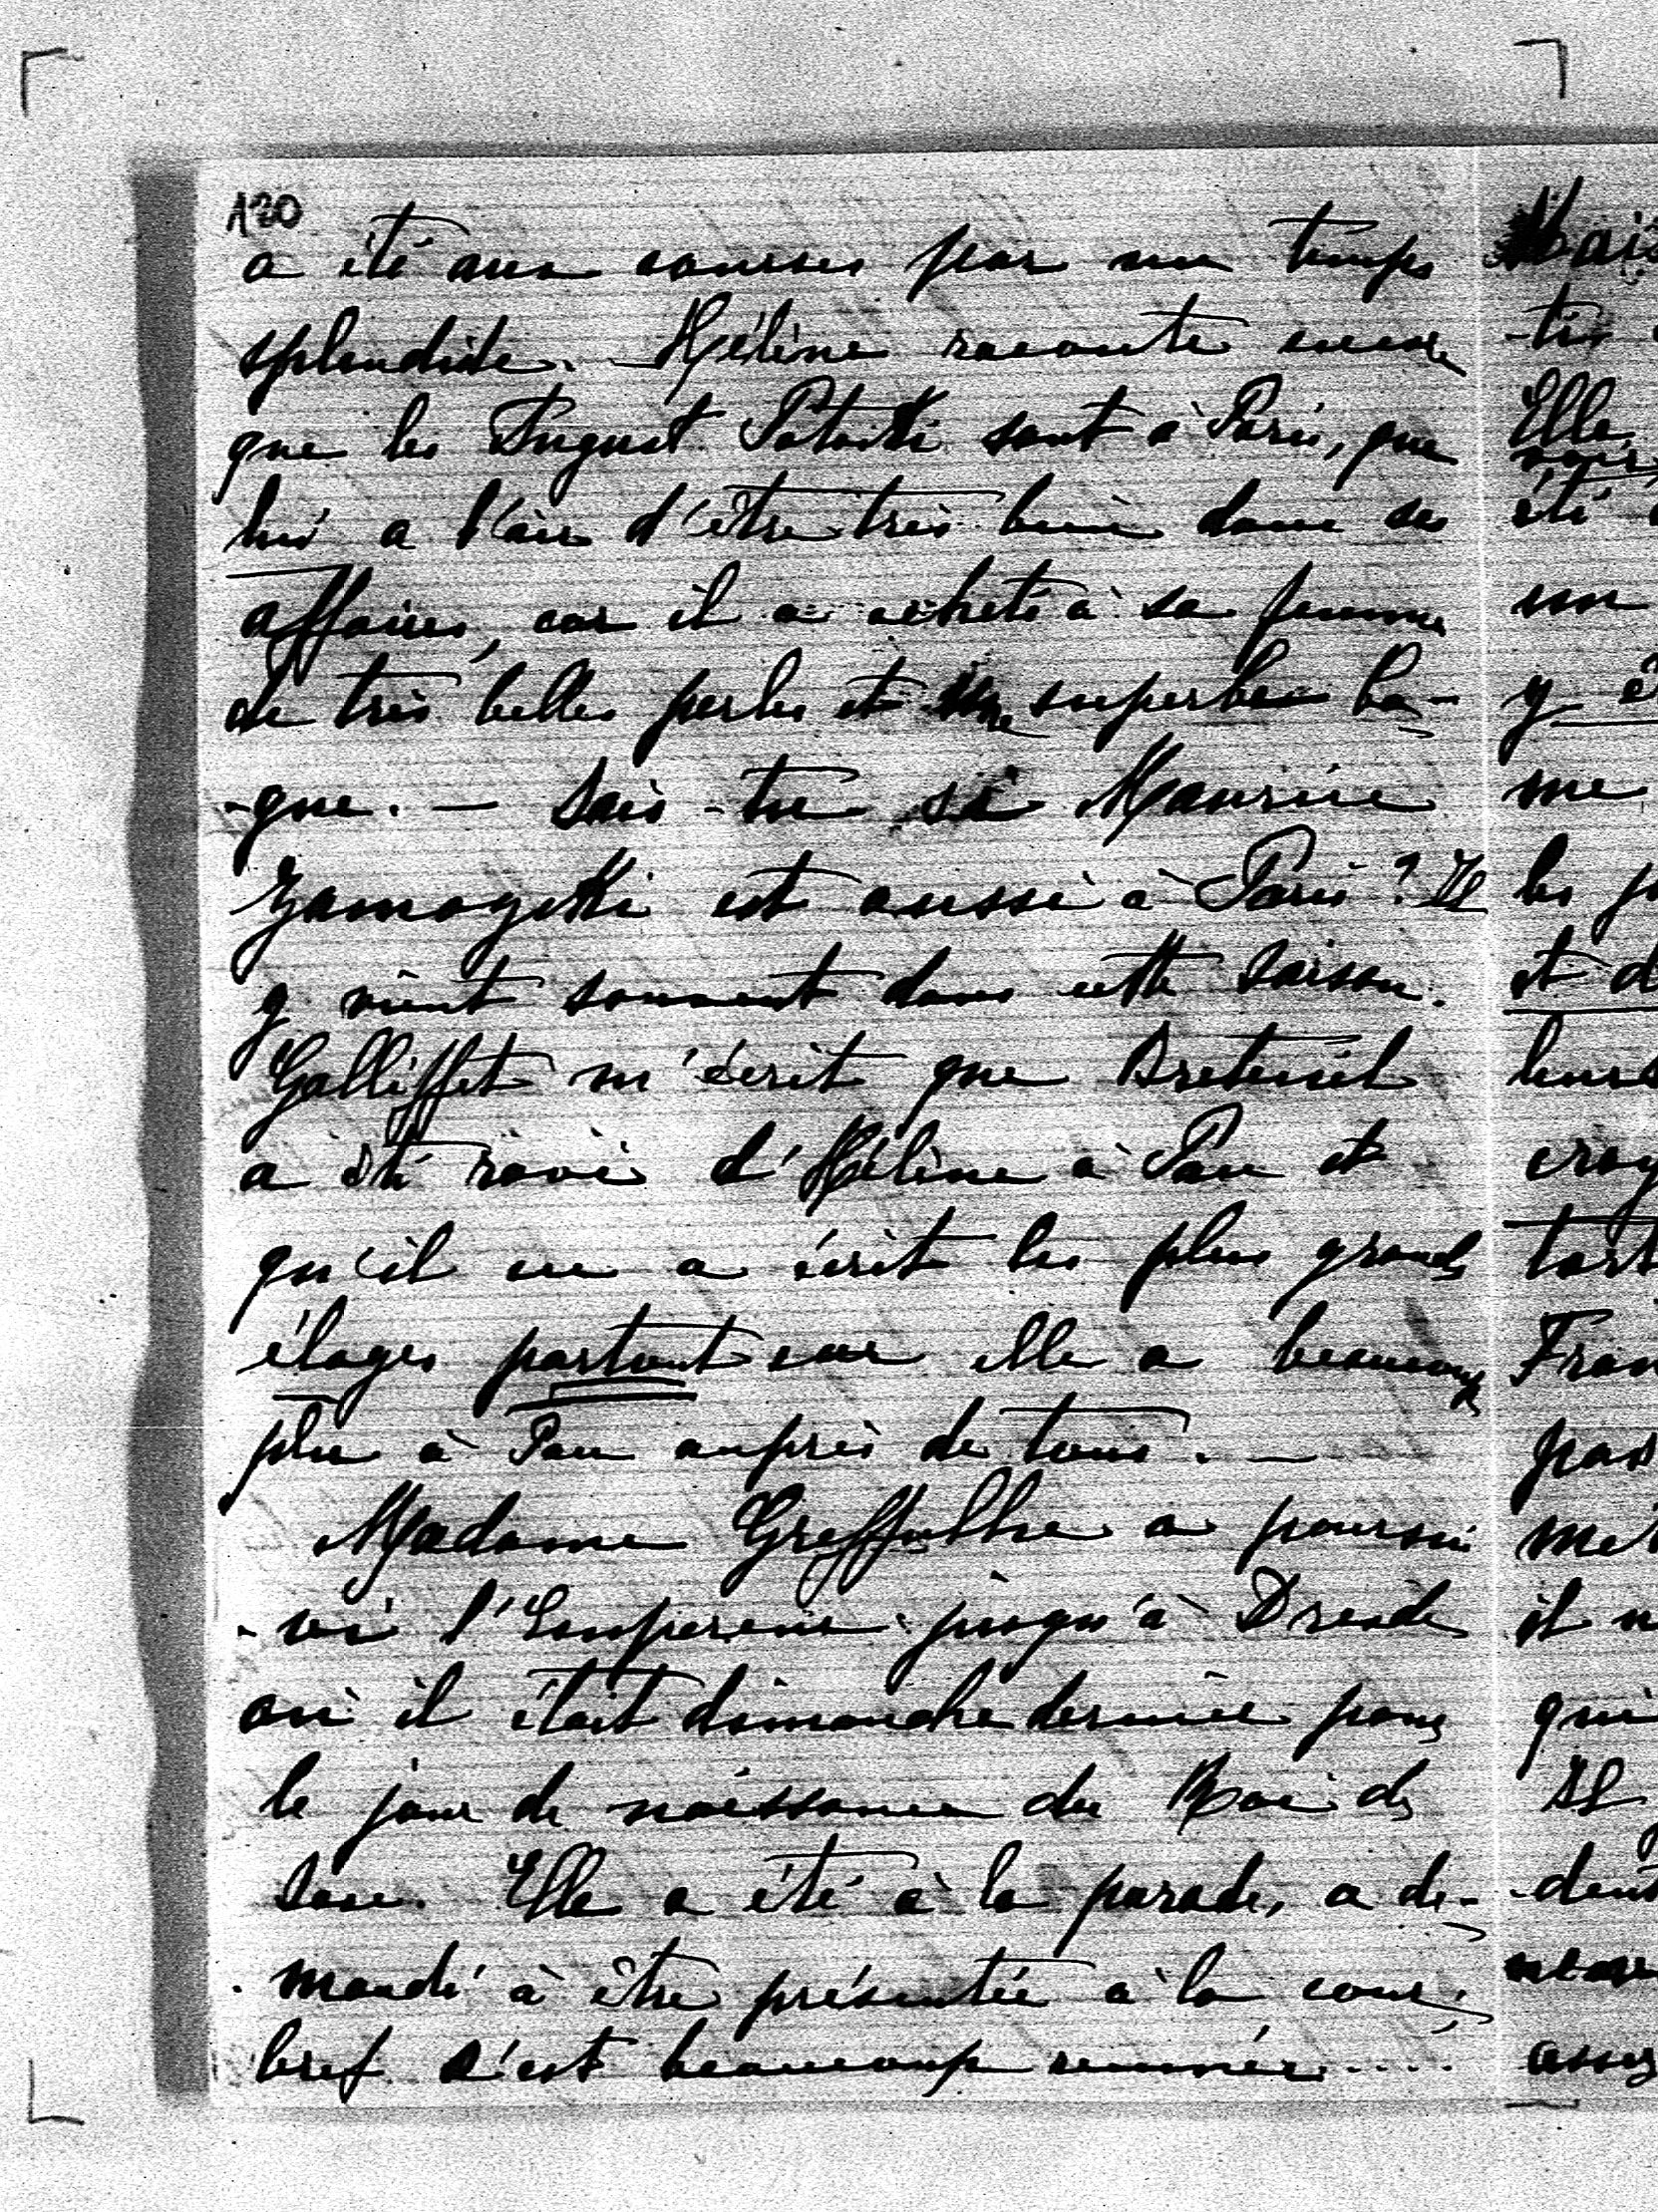 120
a été aux courses par un temps
splendide. — Hélène raconte encore
que les August Potocki sont à Paris, que
lui a l'air d'être très bien dans ses
affaires, car il a acheté à sa femme
de très belles perles et une superbe ba-
-gue. — Sais-tu si Maurice
Zamoyski est aussi à Paris ? Il
y vient souvent dans cette saison.
Galliffet m'écrit que Breteuil
a été ravi d'Hélène à Pau et
qu'il en a écrit les plus grands
éloges partout car elle a beaucoup
plu à Pau auprès de tous. —
Madame Greffulhe a poursui
-vi l'Empereur jusqu'à Dresde
où il était dimanche dernier pour
le jour de naissance du Roi de
Saxe. Elle a été à la parade, a de-
-mandé à être présentée à la cour,
bref s'est beaucoup remuée....
Mais
-tir
Elle
été
son
y
me
les
et d
leurs
croy
tort
Fran
pas
met
il n
qui
Il
-dent
assez